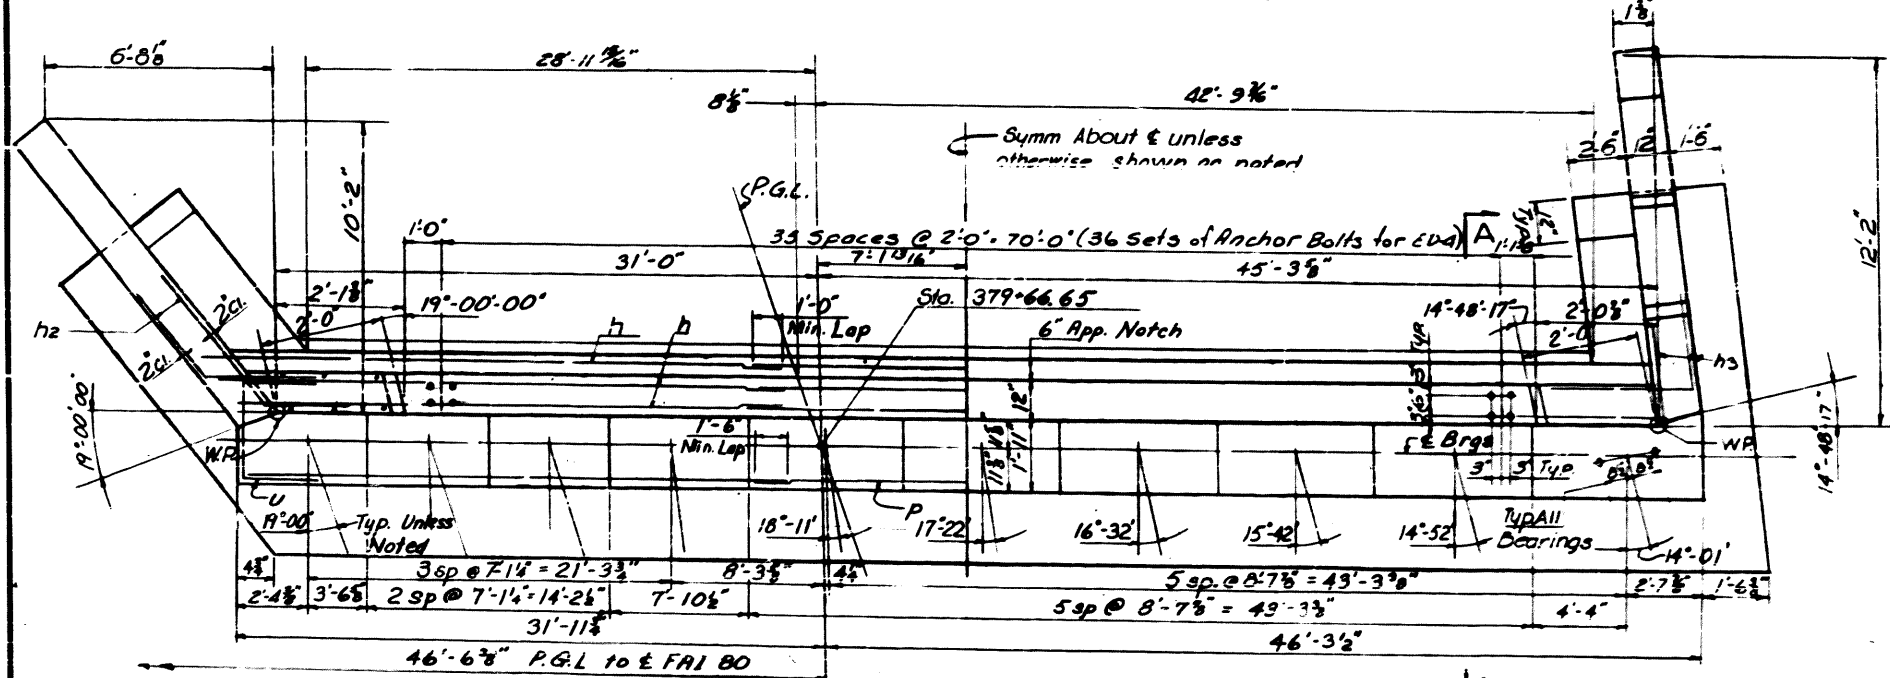 1 3/8"
6'-8 1/8"
28'-11 15/16"
8 1/8"
42'-9 3/16"
Symm About ℄ unless
otherwise shown or noted
2'-6" 12" 1'-6"
P.G.L.
10'-2"
12'-2"
1'-0"
35 Spaces @ 2'-0" = 70'-0" (36 Sets of Anchor Bolts for
A
12"
Typ.
7'-1 13/16"
31'-0"
45'-3 5/8"
2'-1 3/8"
19°-00'-00"
2'-0"
1'-0"
Min. Lap
Sta. 379+66.65
6" App. Notch
14°-48'-17"
2'-0 3/8"
2'-0"
h2
2"cl.
2"cl.
h
h
h3
Typ.
12"
19°00'00"
W.P.
1'-6"
Min. Lap
11 1/8"
1'-11"
℄ Brgs
3" 3" Typ.
W.P.
14°-48'-17"
U
19°-00'
Typ. Unless
Noted
18°-11'
P
17°-22'
16°-32'
15°-42'
14°-52'
Typ All
Bearings
14°-01'
4 3/4"
3 sp @ 7'-1 1/4" = 21'-3 3/4"
4 1/4"
5 sp. @ 8'-7 7/8" = 43'-3 3/8"
2'-7 3/8"
1'-6 3/4"
3'-6 5/8"
2 sp @ 7'-1 1/4" = 14'-2 1/2"
7'-10 1/2"
5 sp @ 8'-7 7/8" = 43'-3 3/8"
4'-4"
31'-11 3/4"
46'-3 1/2"
46'-6 3/8" P.G.L to ℄ FAI 80